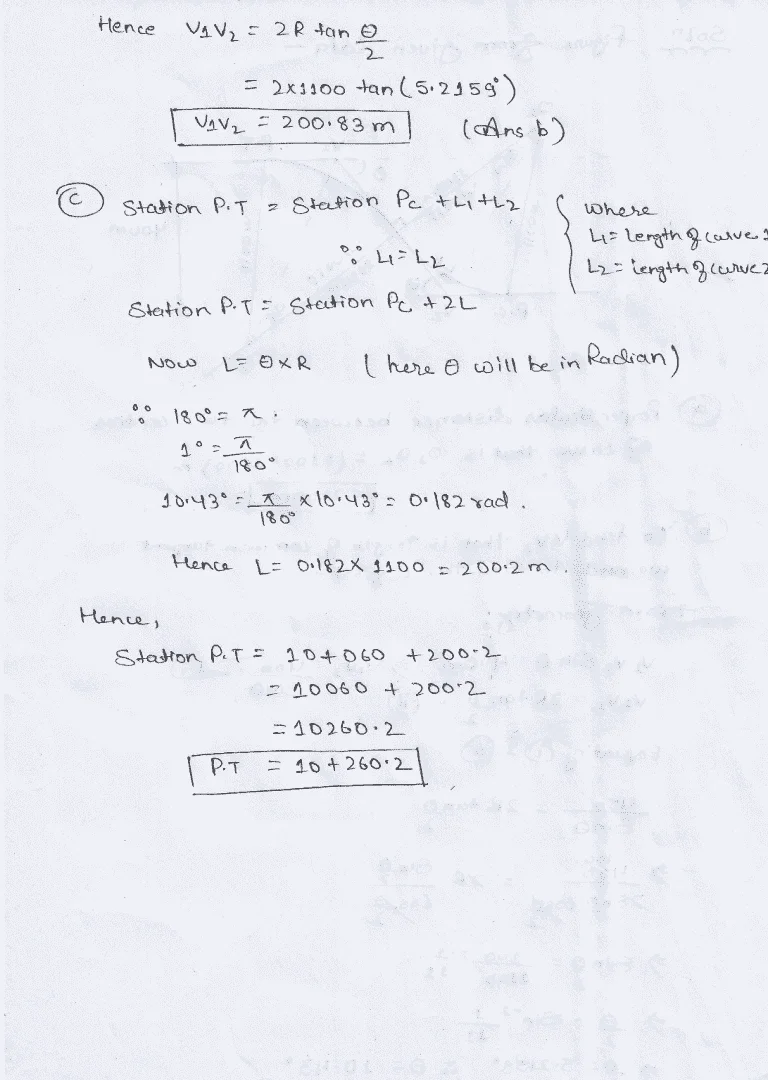 Hence V1V2 = 2R tan θ/2
= 2x1100 tan (5.2159°)
V1V2 = 200.83 m (Ans b)
(C) Station P.T = Station Pc + L1 + L2 { where
L1 = length of curve 1
∵ L1 = L2
L2 = length of curve 2
Station P.T = Station Pc + 2L
Now L = θxR ( here θ will be in Radian)
∵ 180° = π .
1° = π/180°
10.43° = π/180° x 10.43° = 0.182 rad .
Hence L = 0.182 x 1100 = 200.2 m .
Hence,
Station P.T = 10+060 + 200.2
= 10060 + 200.2
= 10260.2
P.T = 10+260.2